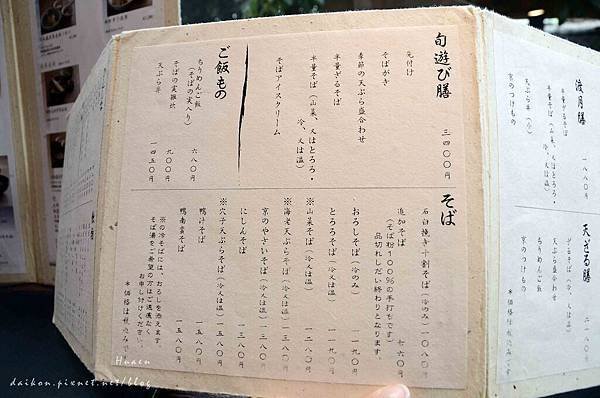 旬遊び膳 三四〇〇円
先付け
そばがき
季節の天ぷら盛合わせ
半量ざるそば
半量そば（山菜、又はとろろ・
冷、又は温）
そばアイスクリーム
ご飯もの
ちりめんご飯 六八〇円
（そばの実入り）
そばの実雑炊 九〇〇円
天ぷら丼 一四五〇円
そば
石臼挽き十割そば（冷のみ）一〇八〇円
（そば粉１００％の手打ちです）
品切れしだい終わりとなります。
追加そば 七六〇円
おろしそば（冷のみ）一一九〇円
とろろそば（冷又は温）一一九〇円
※山菜そば（冷又は温）一一八〇円
※海老天ぷらそば（冷又は温）一五八〇円
京のやさいそば（冷又は温）一三八〇円
にしんそば 一三八〇円
※穴子天ぷらそば（冷又は温）一五八〇円
鴨汁そば 一五八〇円
鴨南蛮そば 一五八〇円
※の冷そばには、おろしを添えます。
そば湯をご希望の方はご遠慮なく
お申し付けください。
＊価格は税込みで
渡月膳 一八八〇円
半量ざるそば
半量そば（山菜、又はとろろ・
冷、又は温）
天ぷら丼（小）
京のつけもの
天ざる膳 二一八〇円
ざるそば（冷、又は温）
天ぷら盛合わせ
ちりめんご飯
京のつけもの
＊価格は税込みです
Huaen
daikon.pixnet.net/blog